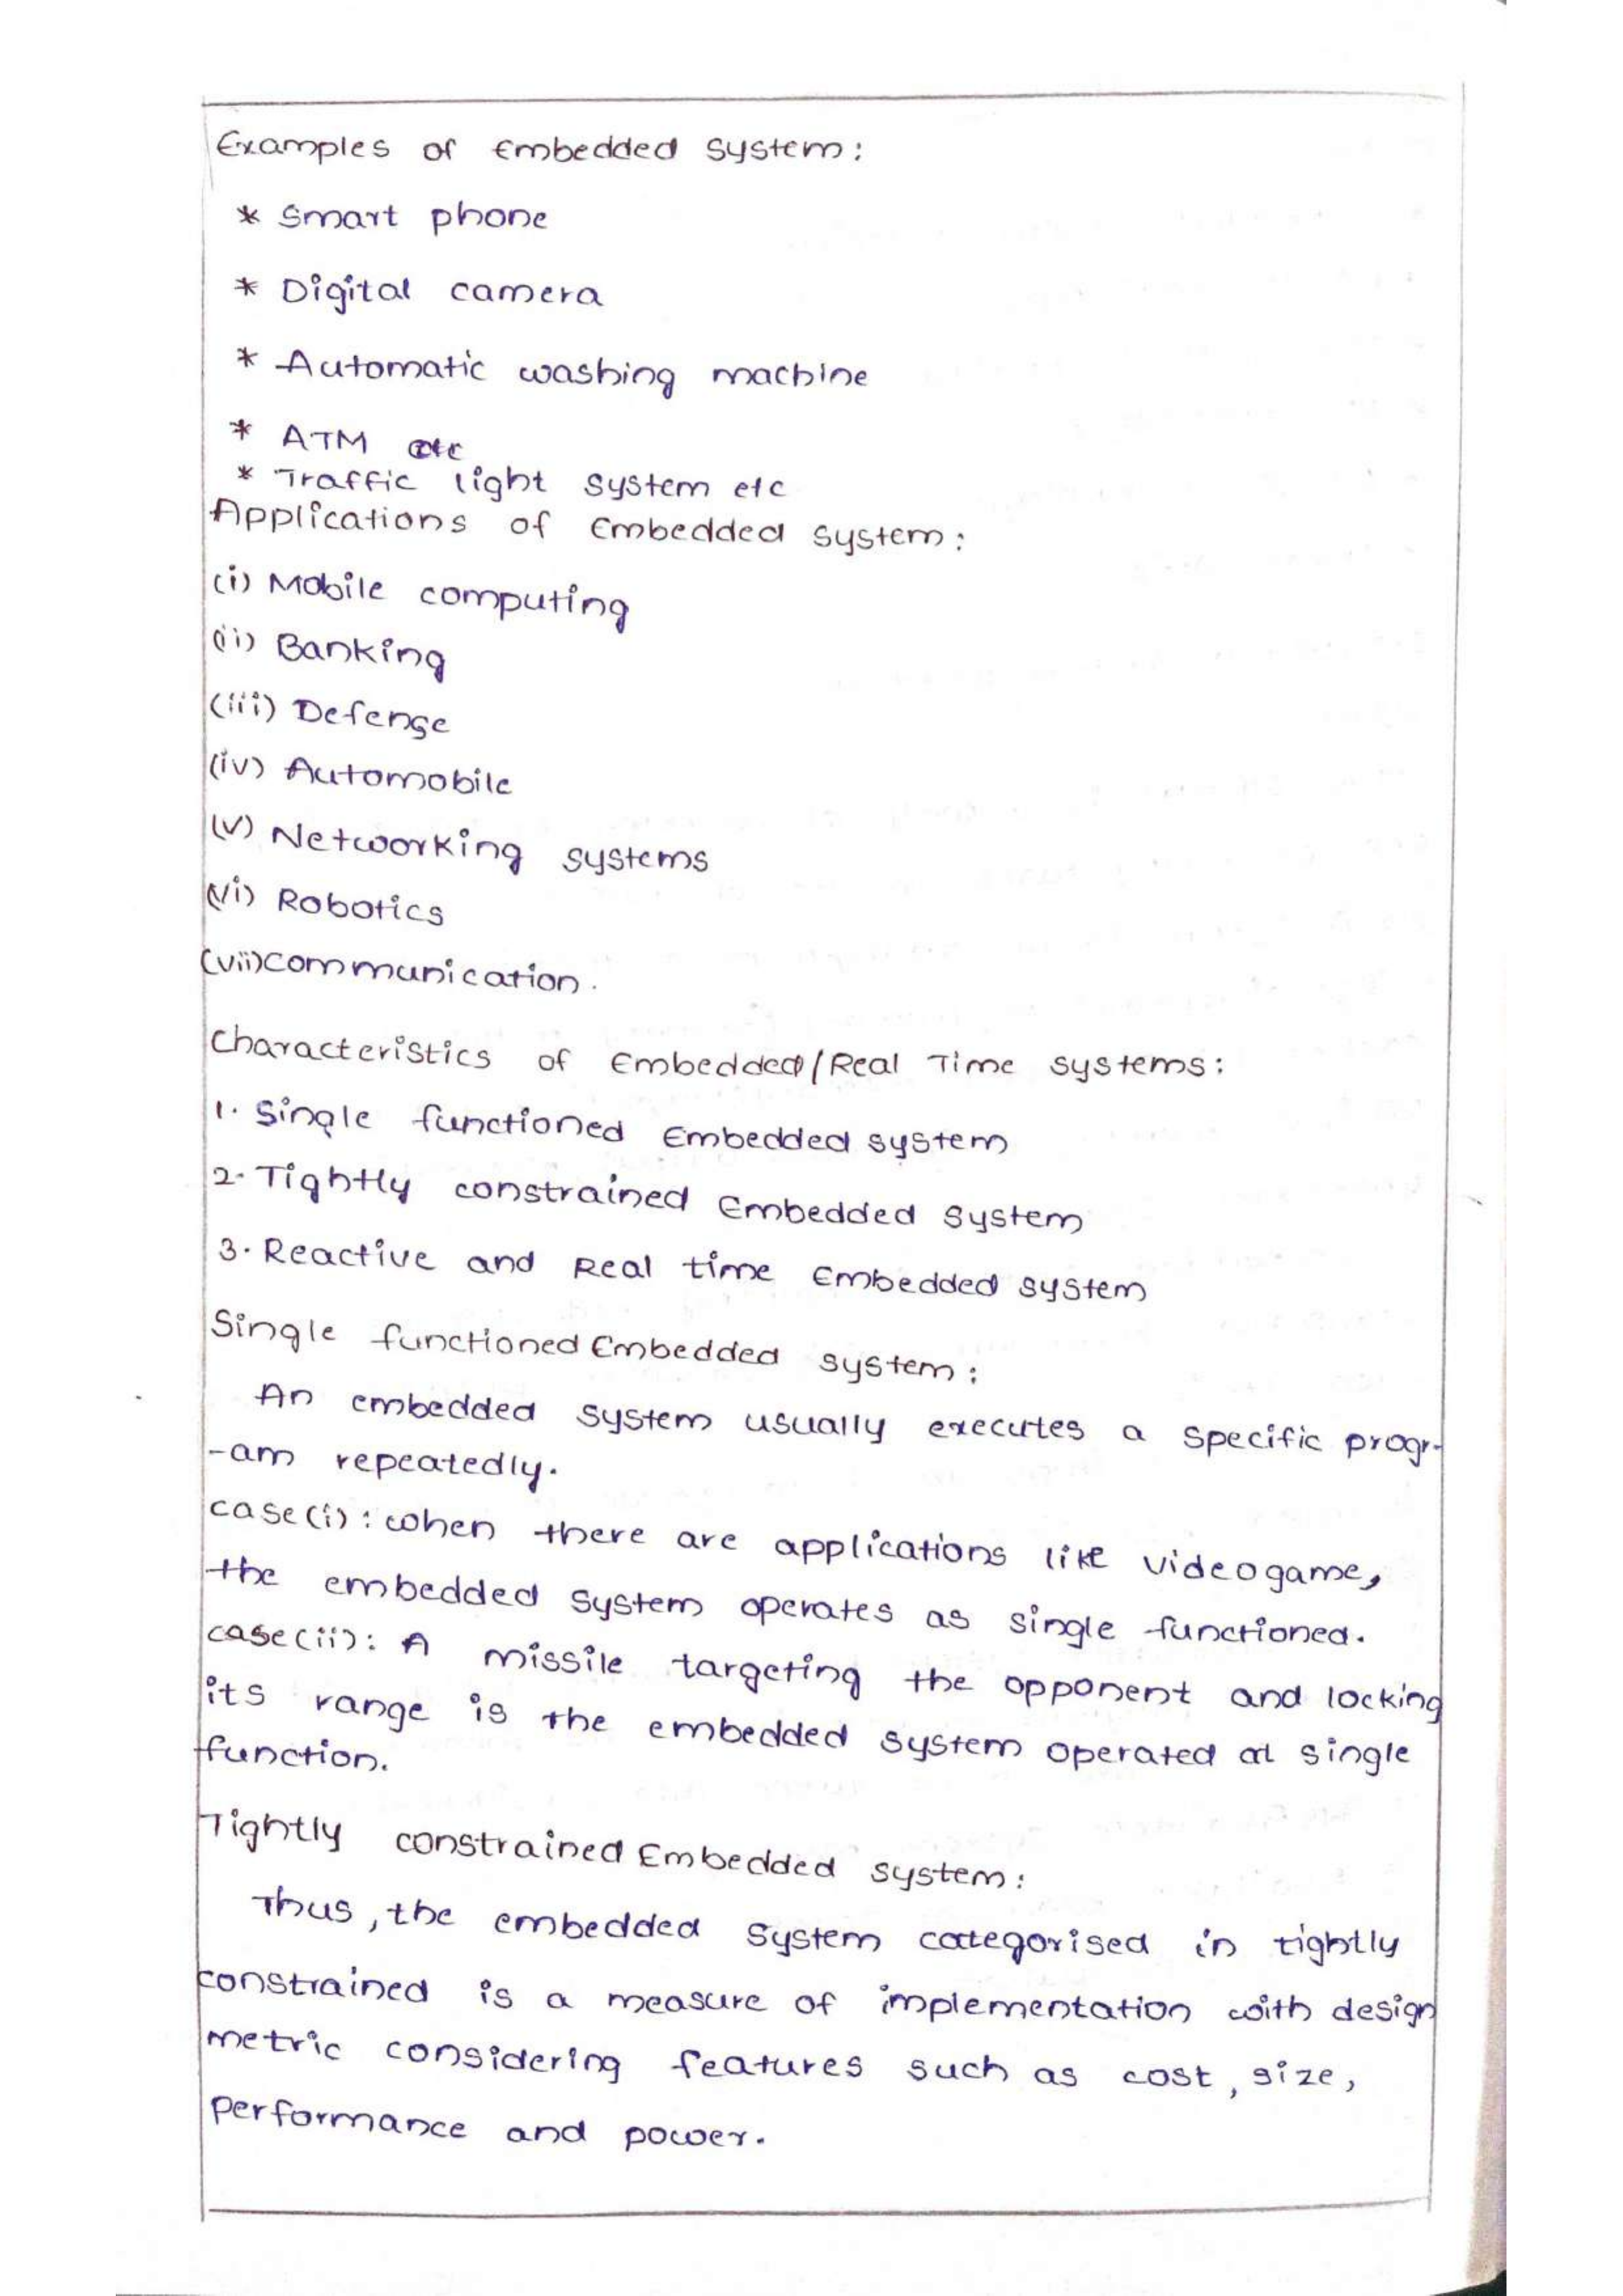 Examples of Embedded System:
* Smart phone
* Digital camera
* Automatic washing machine
* ATM etc
* Traffic light system etc
Applications of Embedded System:
(i) Mobile computing
(ii) Banking
(iii) Defense
(iv) Automobile
(v) Networking systems
(vi) Robotics
(vii) communication.
Characteristics of Embedded/Real Time systems:
1. Single functioned Embedded system
2. Tightly constrained Embedded System
3. Reactive and Real time Embedded system
Single functioned Embedded system:
An embedded system usually executes a specific progr-
-am repeatedly.
case(i): when there are applications like videogame,
the embedded system operates as single functioned.
case(ii): A missile targeting the opponent and locking
its range is the embedded system operated at single
function.
Tightly constrained Embedded system:
Thus, the embedded System categorised in tightly
constrained is a measure of implementation with design
metric considering features such as cost, size,
performance and power.